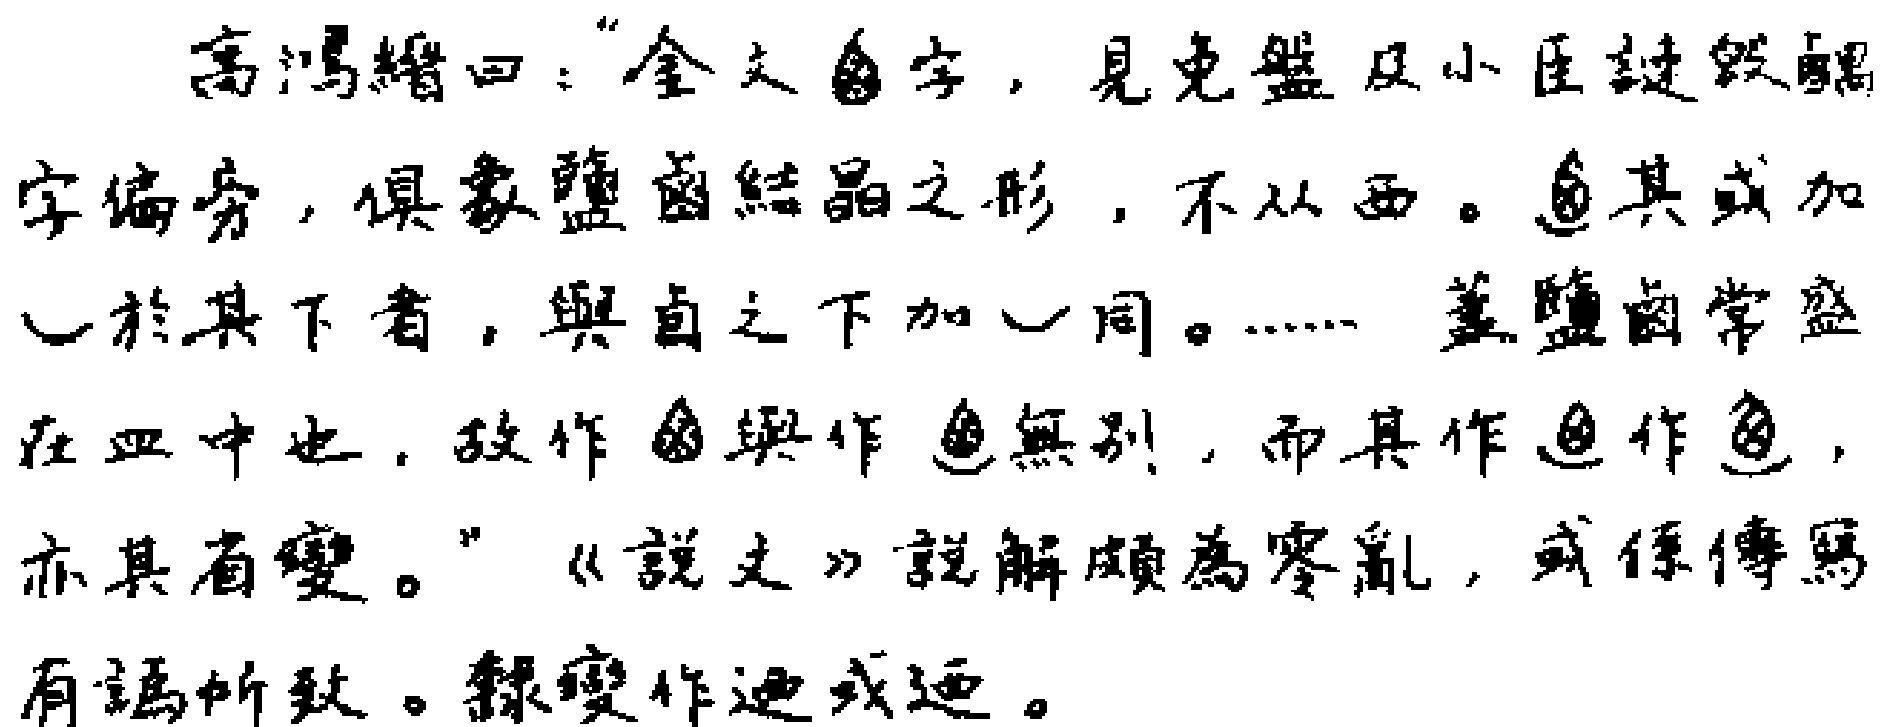 高鴻縉曰：“金文字，見免盤及小臣謎𣪘
字偏旁，俱象鹽鹵結晶之形，不从西。其或加
㇃於其下者，與卣之下加㇃同。…… 蓋鹽鹵常盛
在皿中也，故作與作無別，而其作作，
亦其省變。”《説文》説解頗為零亂，或係傳寫
有譌所致。隸變作迺或廼。